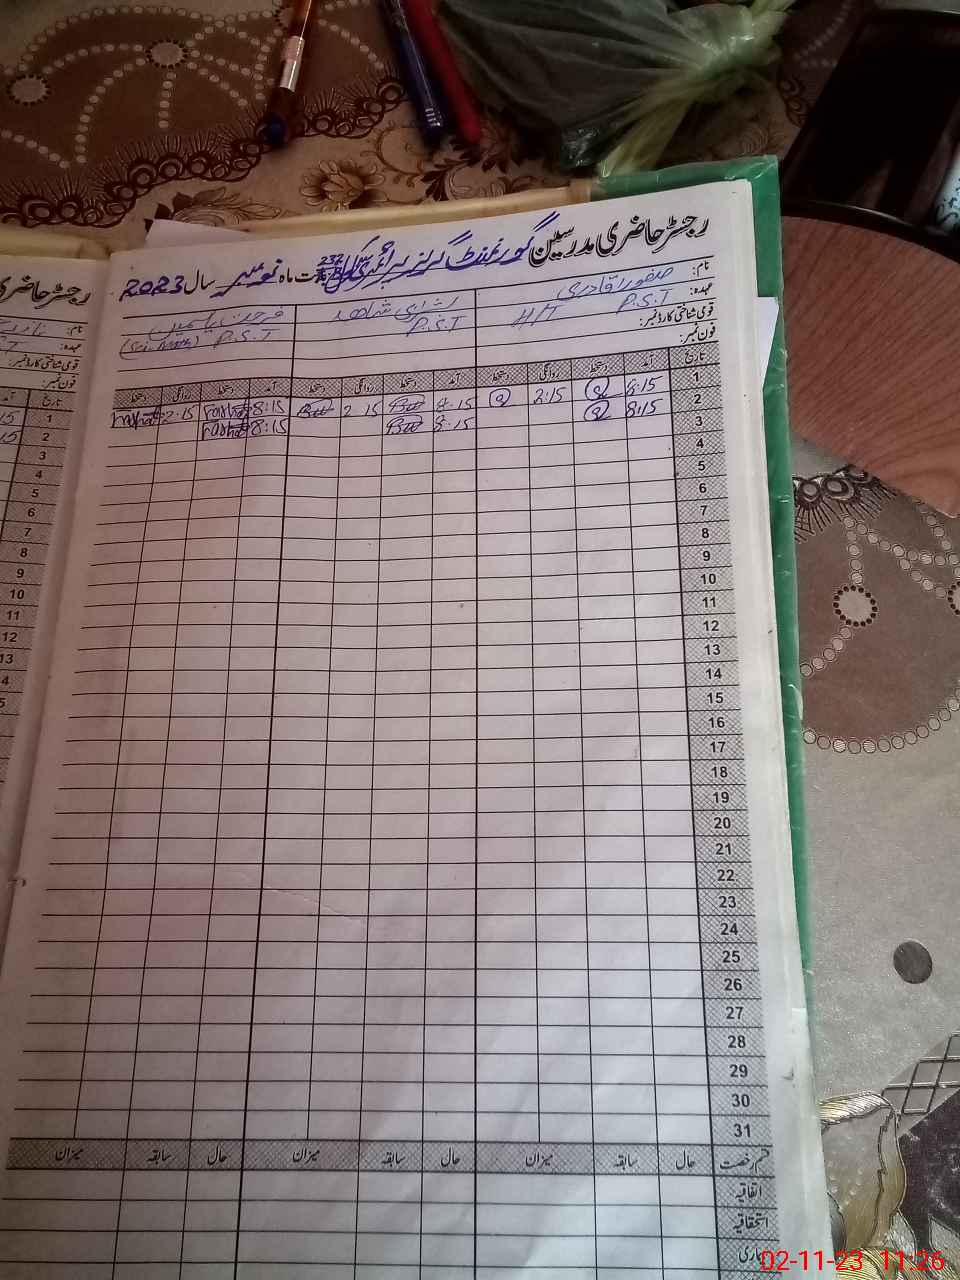 رجسٹر حاضری مدرسین گورنمنٹ گرلز پرائمری سکول بابت ماہ نومبر سال 2023
نام: صفورا قادری
عہدہ: P.S.T H/T P.S.T P.S.T (Sci. Math)
قومی شناختی کارڈ نمبر:
فون نمبر:
تاریخ آمد دستخط روانگی دستخط آمد دستخط روانگی دستخط آمد دستخط روانگی دستخط
1 8:15 2:15 8:15 2 15 8:15 2:15
2 8:15 8:15 8:15
3
4
5
6
7
8
9
10
11
12
13
14
15
16
17
18
19
20
21
22
23
24
25
26
27
28
29
30
31
قسم رخصت حال سابقہ میزان حال سابقہ میزان حال سابقہ میزان
اتفاقیہ
استحقاقیہ
رجسٹر حاضری
نام:
عہدہ:
قومی شناختی کارڈ نمبر:
فون نمبر:
تاریخ آمد
1
2
3
4
5
6
7
8
9
10
11
12
13
02-11-23 11:26